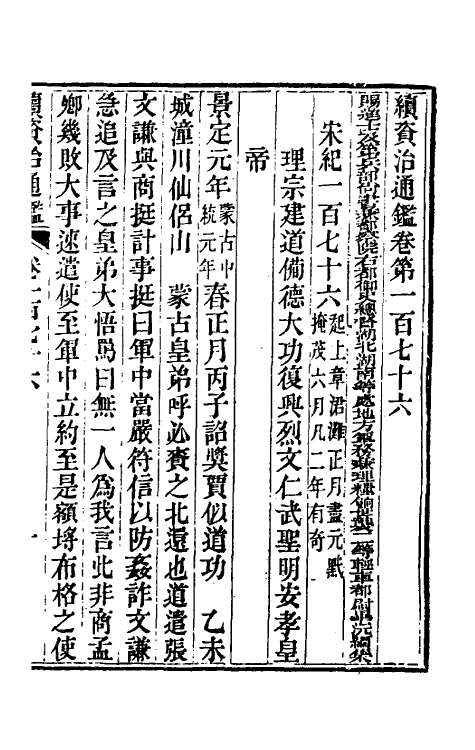 續資治通鑑卷第一百七十六
賜進士及第兵部尚書兼都察院右都御史總督湖北湖南等處地方軍務兼理糧餉世襲二等輕車都尉畢沅編集
宋紀一百七十六起上章涒灘正月盡元黓掩茂六月凡二年有奇
理宗建道備德大功復興烈文仁武聖明安孝皇
帝
景定元年蒙古中統元年春正月丙子詔獎賈似道功　乙未
城潼川仙侶山　蒙古皇弟呼必賚之北還也道遣張
文謙與商挺計事挺曰軍中當嚴符信以防姦詐文謙
急追及言之皇弟大悟罵曰無一人爲我言此非商孟
卿幾敗大事速遣使至軍中立約至是額埒布格之使
續資治通鑑　卷一百七十六　一